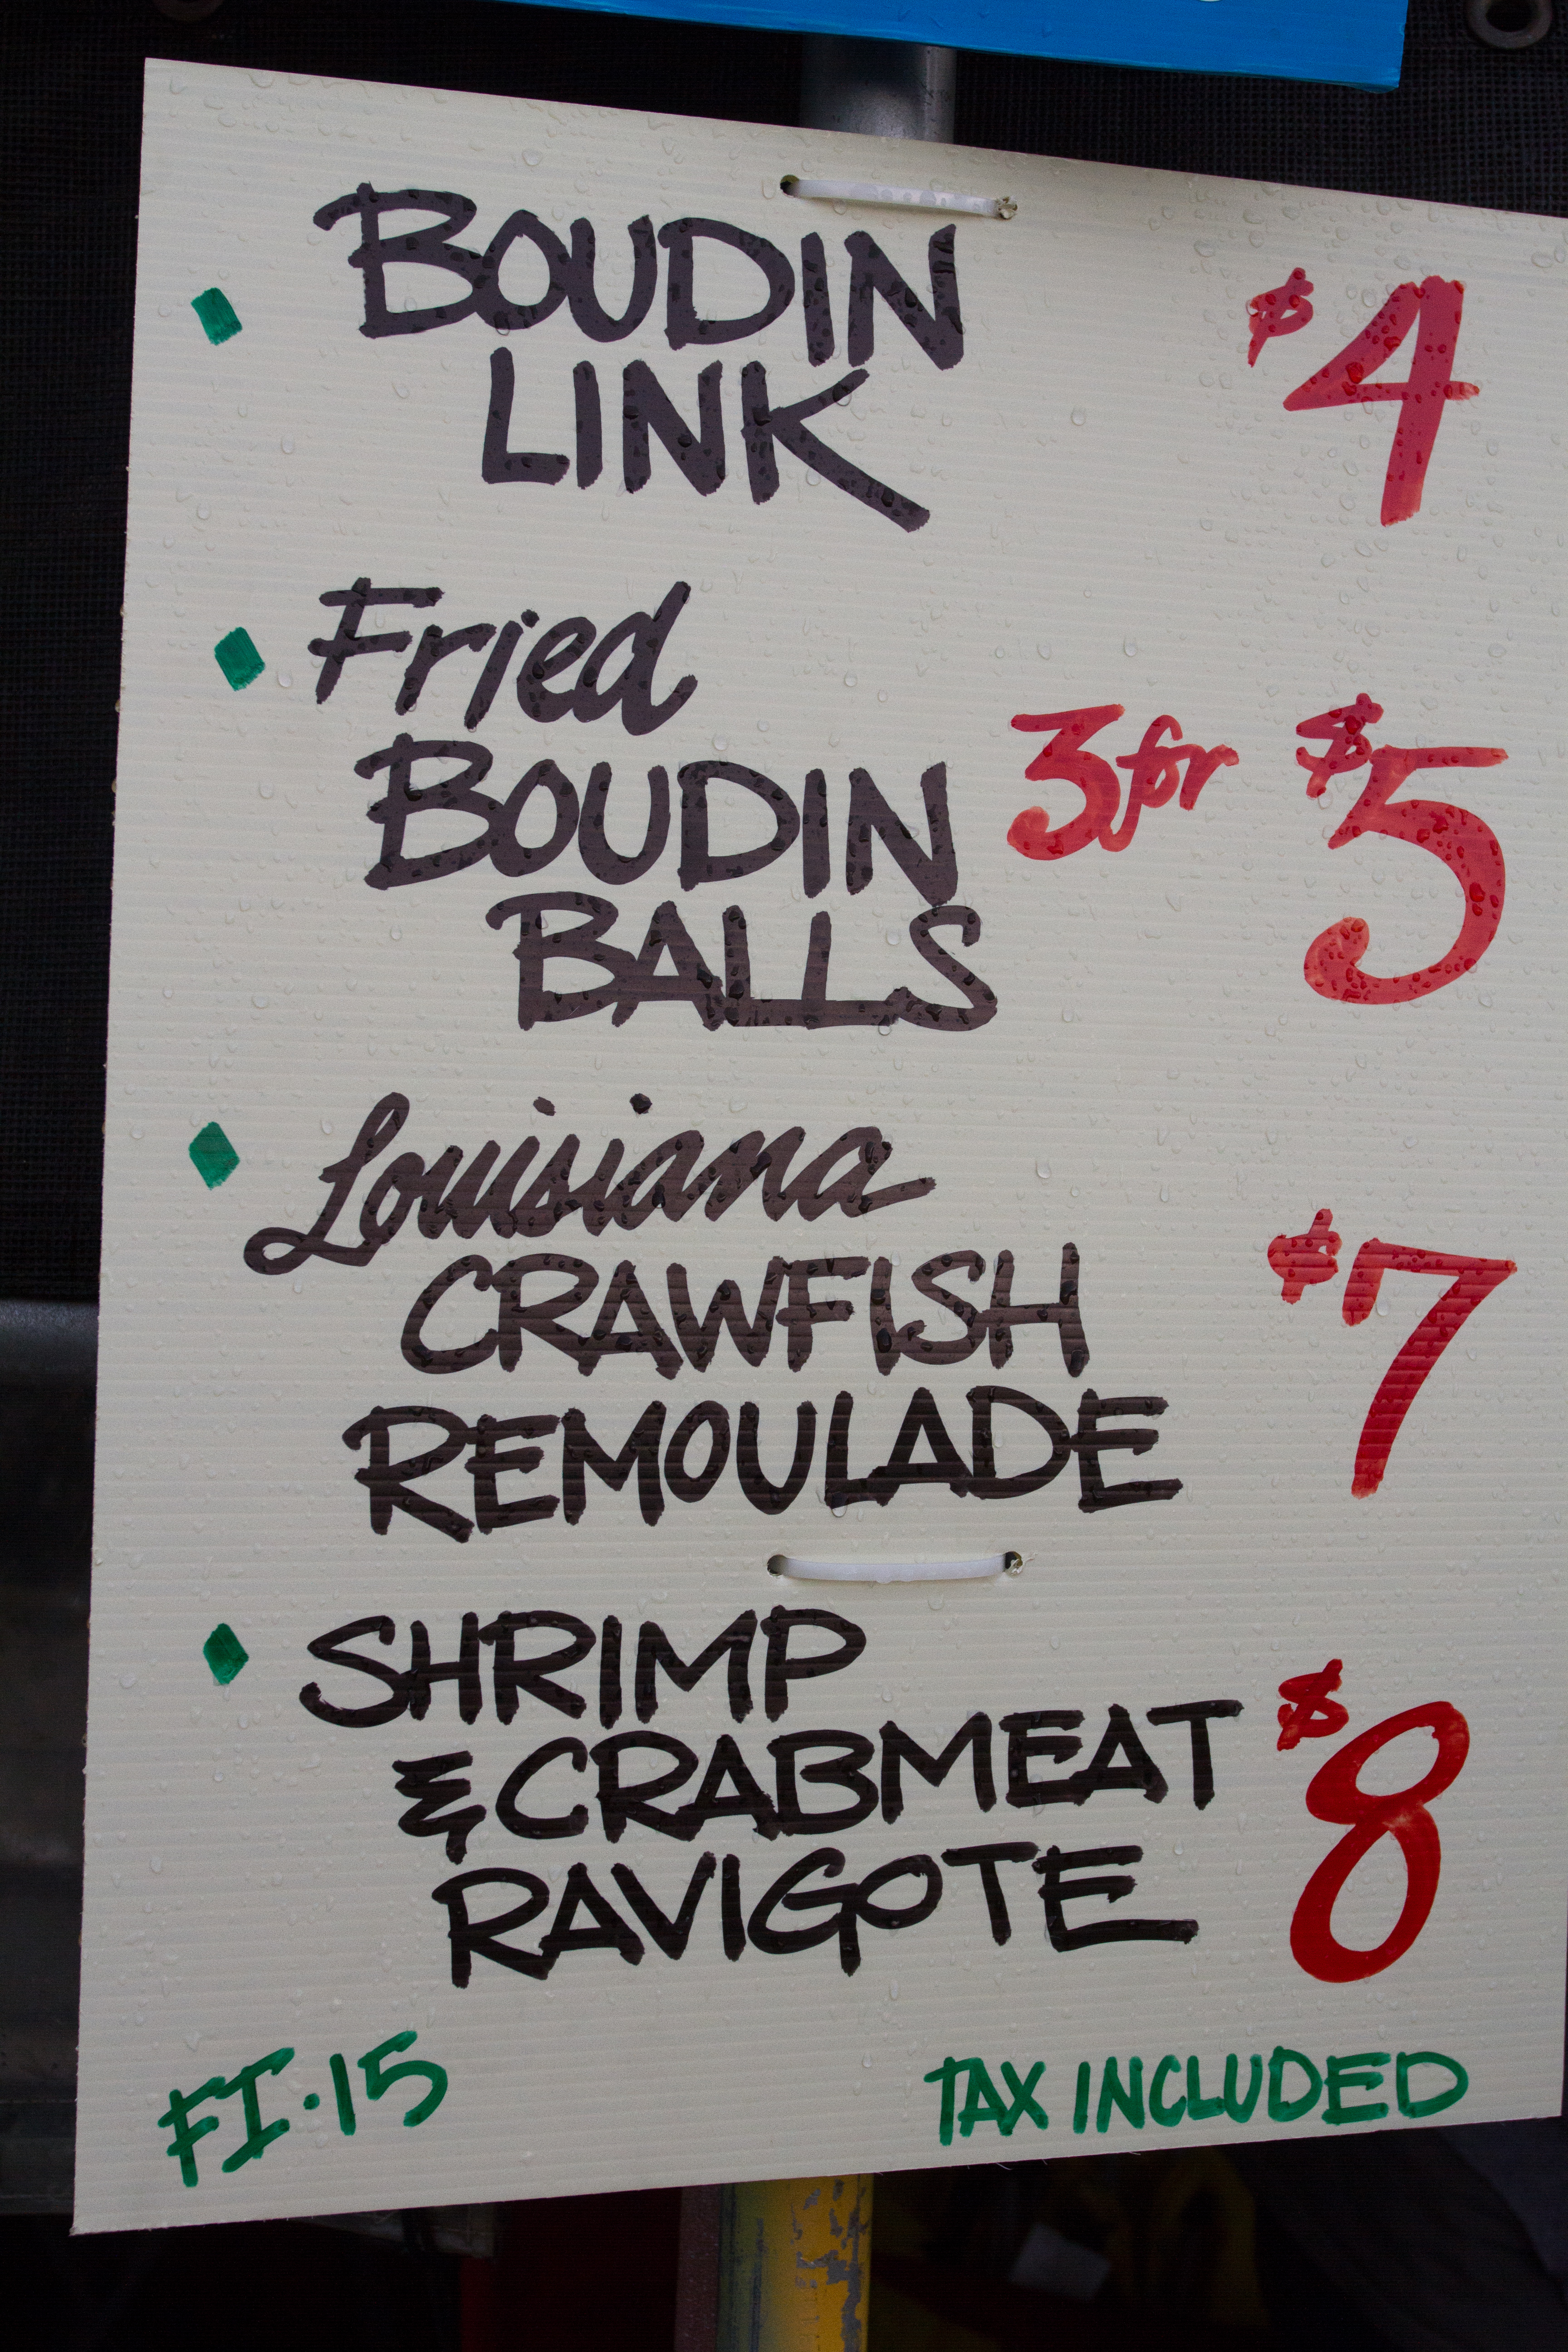 BOUDIN $4
LINK
Fried
BOUDIN 3 for $5
BALLS
Louisiana
CRAWFISH $7
REMOULADE
SHRIMP
& CRABMEAT $8
RAVIGOTE
FI·15 TAX INCLUDED